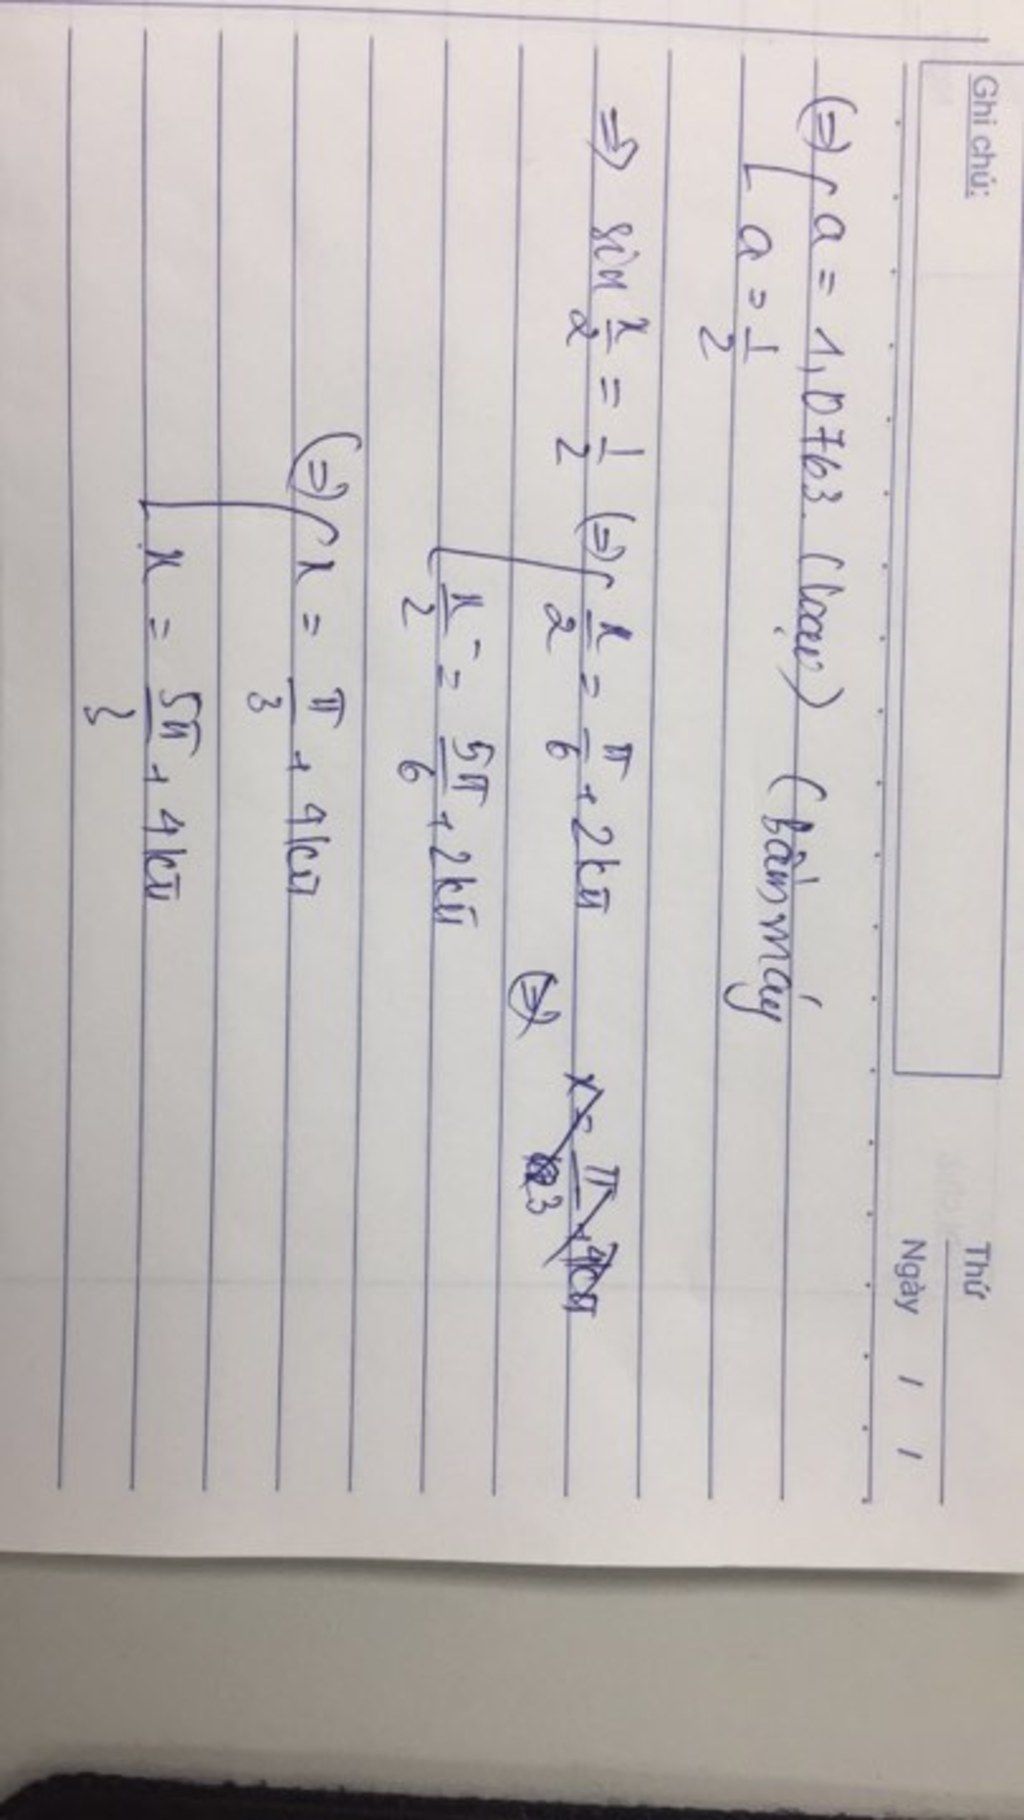 Ghi chú:
Thứ
Ngày / /
(=) [ a = 1,0763. (loại) (bấm máy
a = 1/2
=> sin x/2 = 1/2 (=) [ x/2 = π/6 + 2kπ (=) x = π/3 + 4kπ
x/2 = 5π/6 + 2kπ
(=) [ x = π/3 + 4kπ
x = 5π/3 + 4kπ